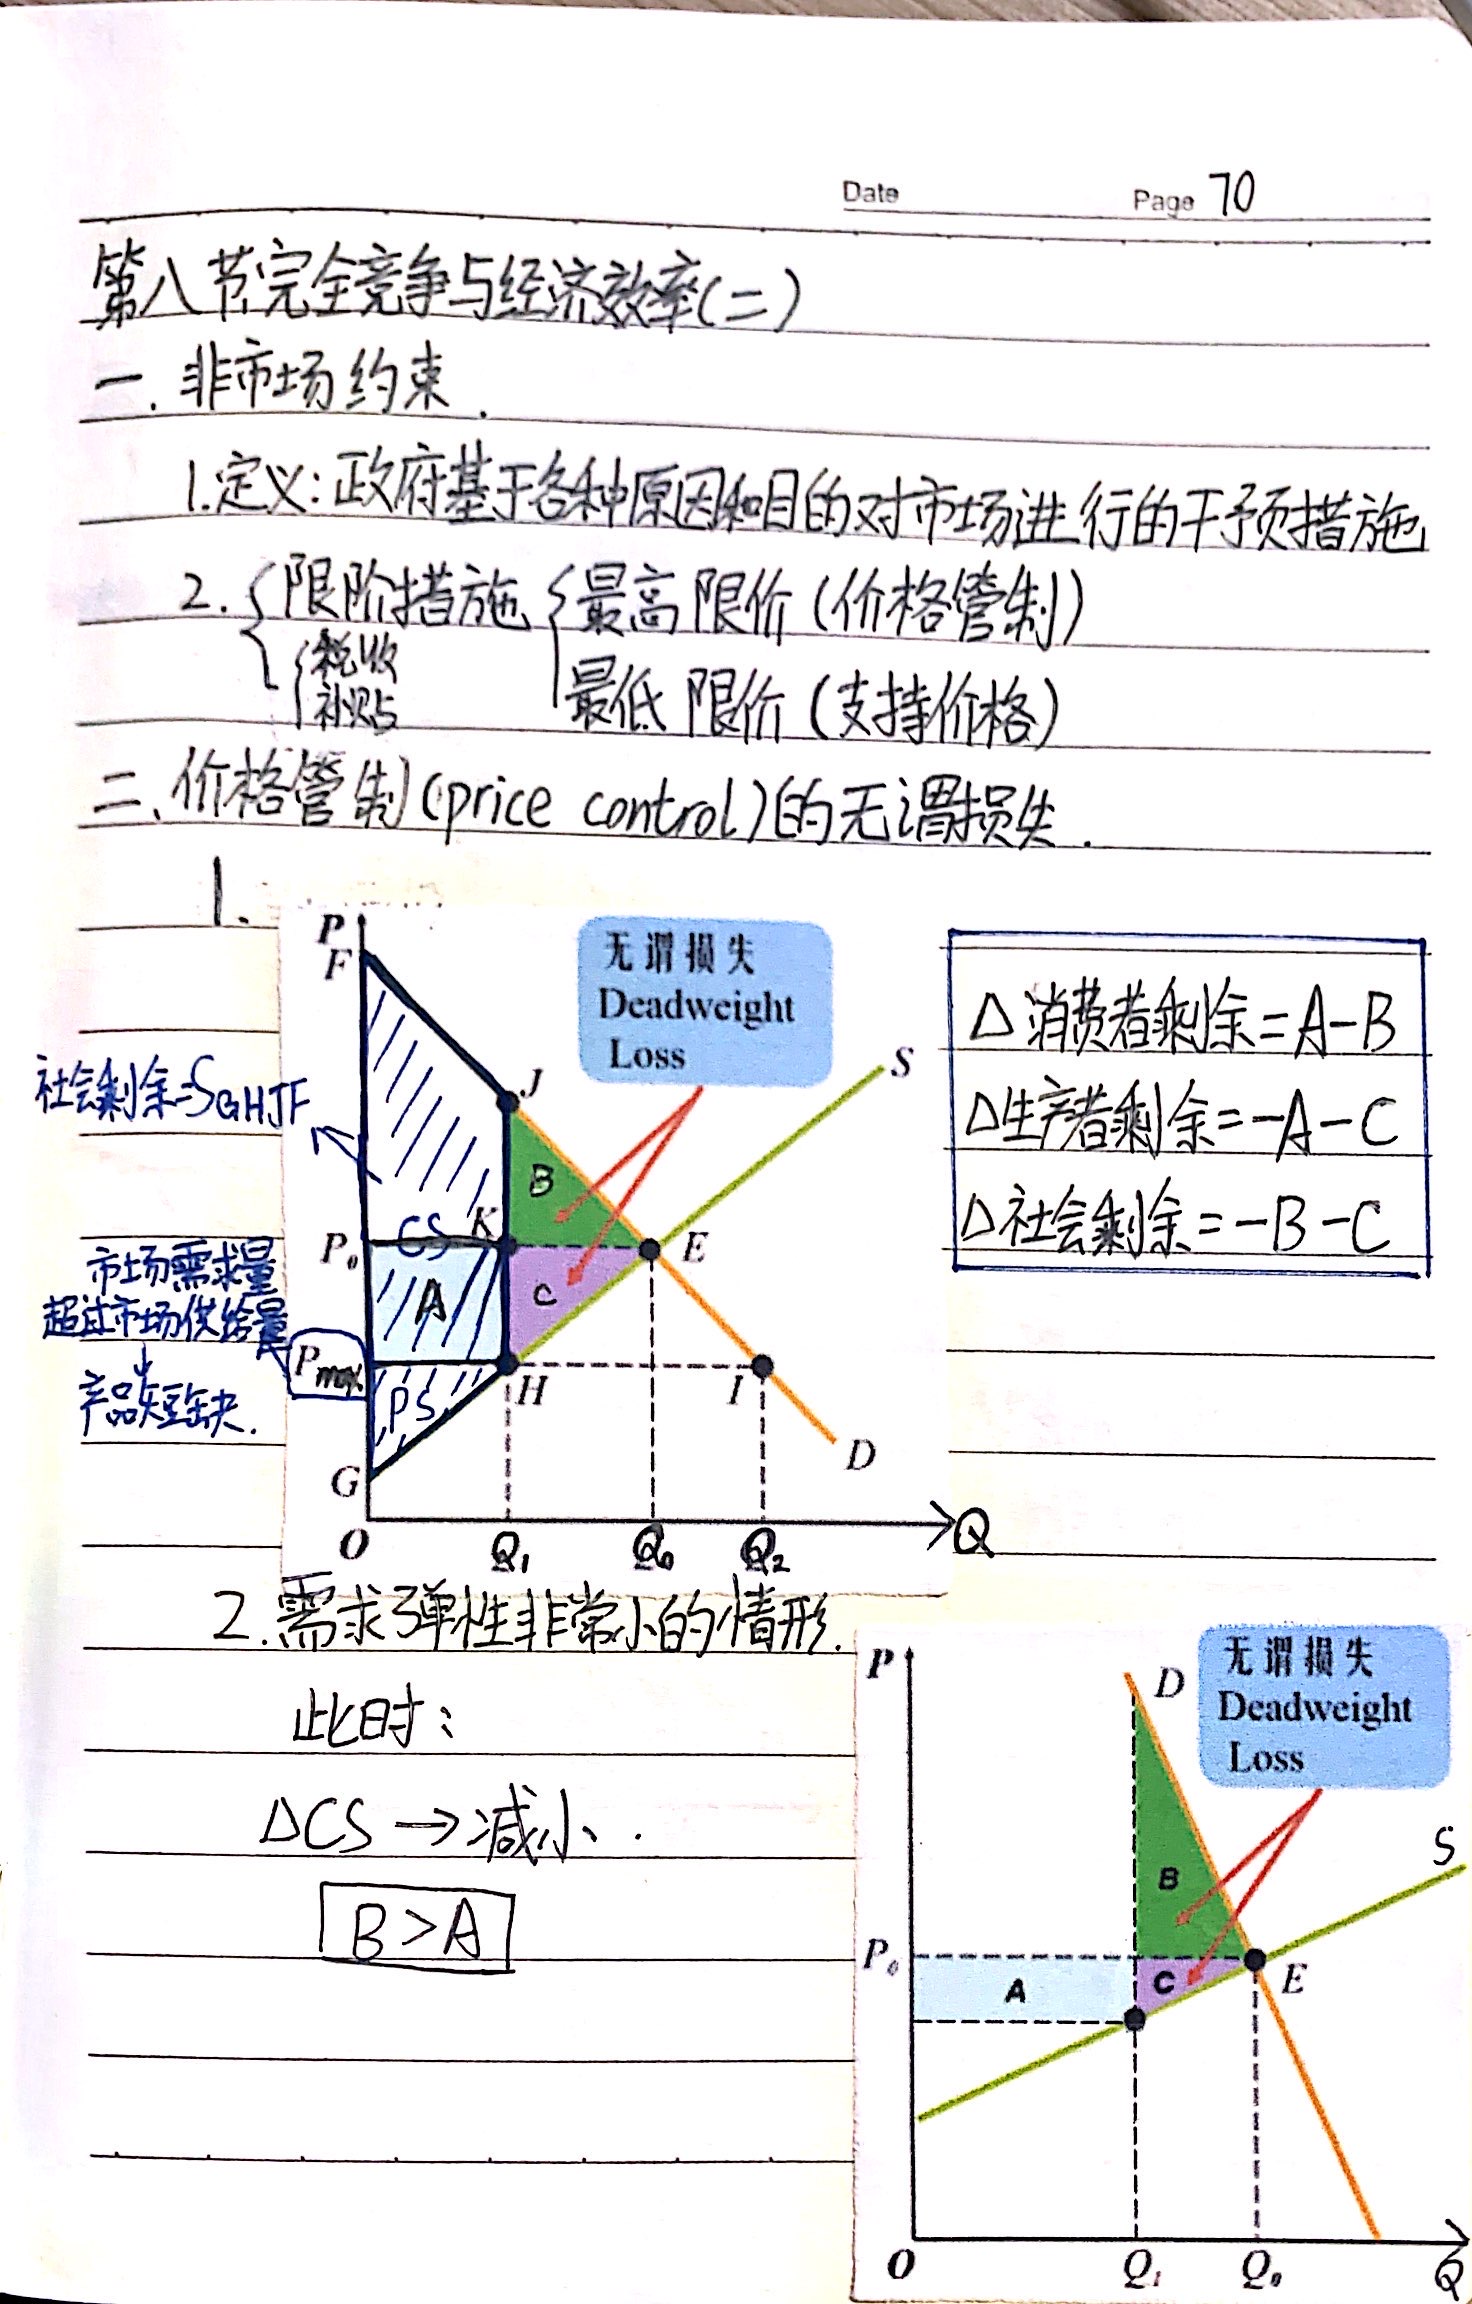 Date Page 70
第八节完全竞争与经济效率(二)
一. 非市场约束.
1.定义:政府基于各种原因和目的对市场进行的干预措施
2. 限阶措施 最高限价(价格管制)
税收
补贴 最低限价(支持价格)
二、价格管制(price control)的无谓损失.
1.
P
F
无谓损失
Deadweight
Loss
S
J
社会剩余=SGHJF
B
CS K
P₀ E
市场需求量
超过市场供给量
A C
Pmax
产品短缺.
PS H I
D
G
O Q₁ Q₀ Q₂ Q
△消费者剩余=A-B
△生产者剩余=-A-C
△社会剩余=-B-C
2.需求弹性非常小的情形.
此时:
△CS→减小.
B>A
P D
无谓损失
Deadweight
Loss
S
B
P₀
A C E
O Q₁ Q₀ Q